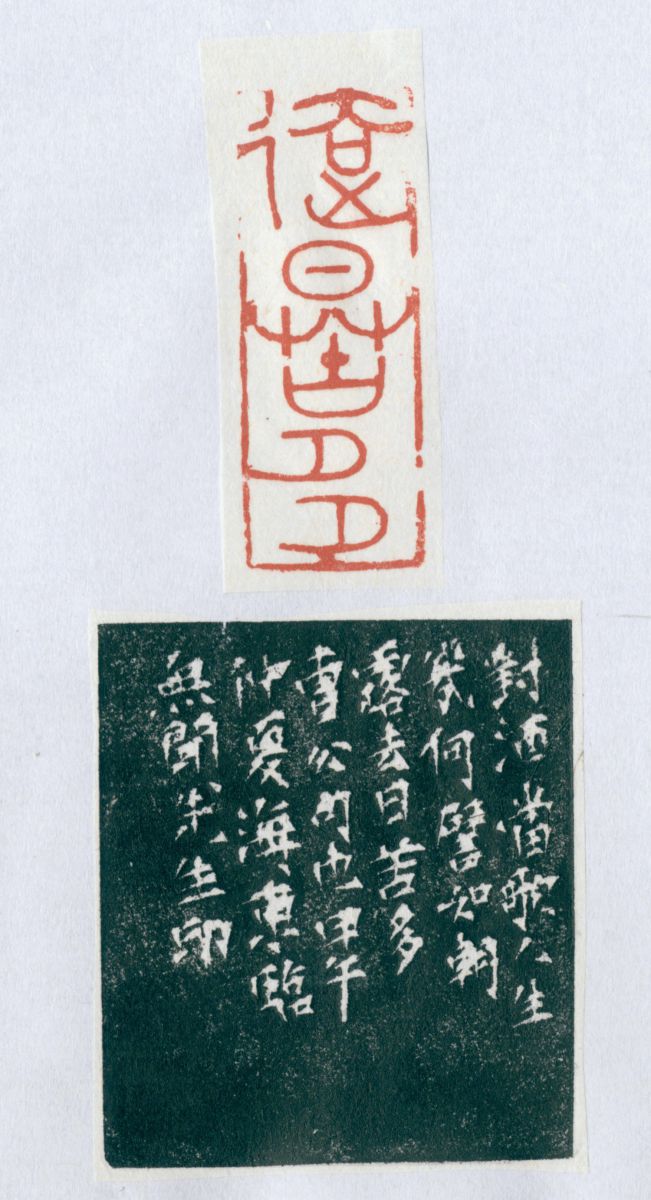 去日苦多
對酒當歌人生
幾何譬如朝
露去日苦多
曹公句也甲午
仲夏海臨
無聞先生印